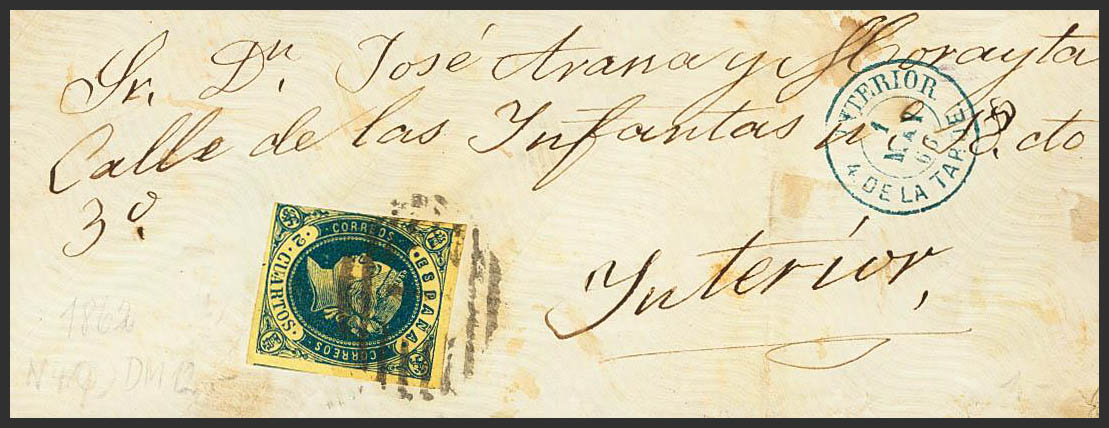 Sr. Dn. José Arana y Morayta
Calle de las Infantas n 18. cto
3º.
Interior,
INTERIOR
1
MAY
66
4 DE LA TARDE
CORREOS
ESPAÑA
2 · CUARTOS
CORREOS
1862
DM 12